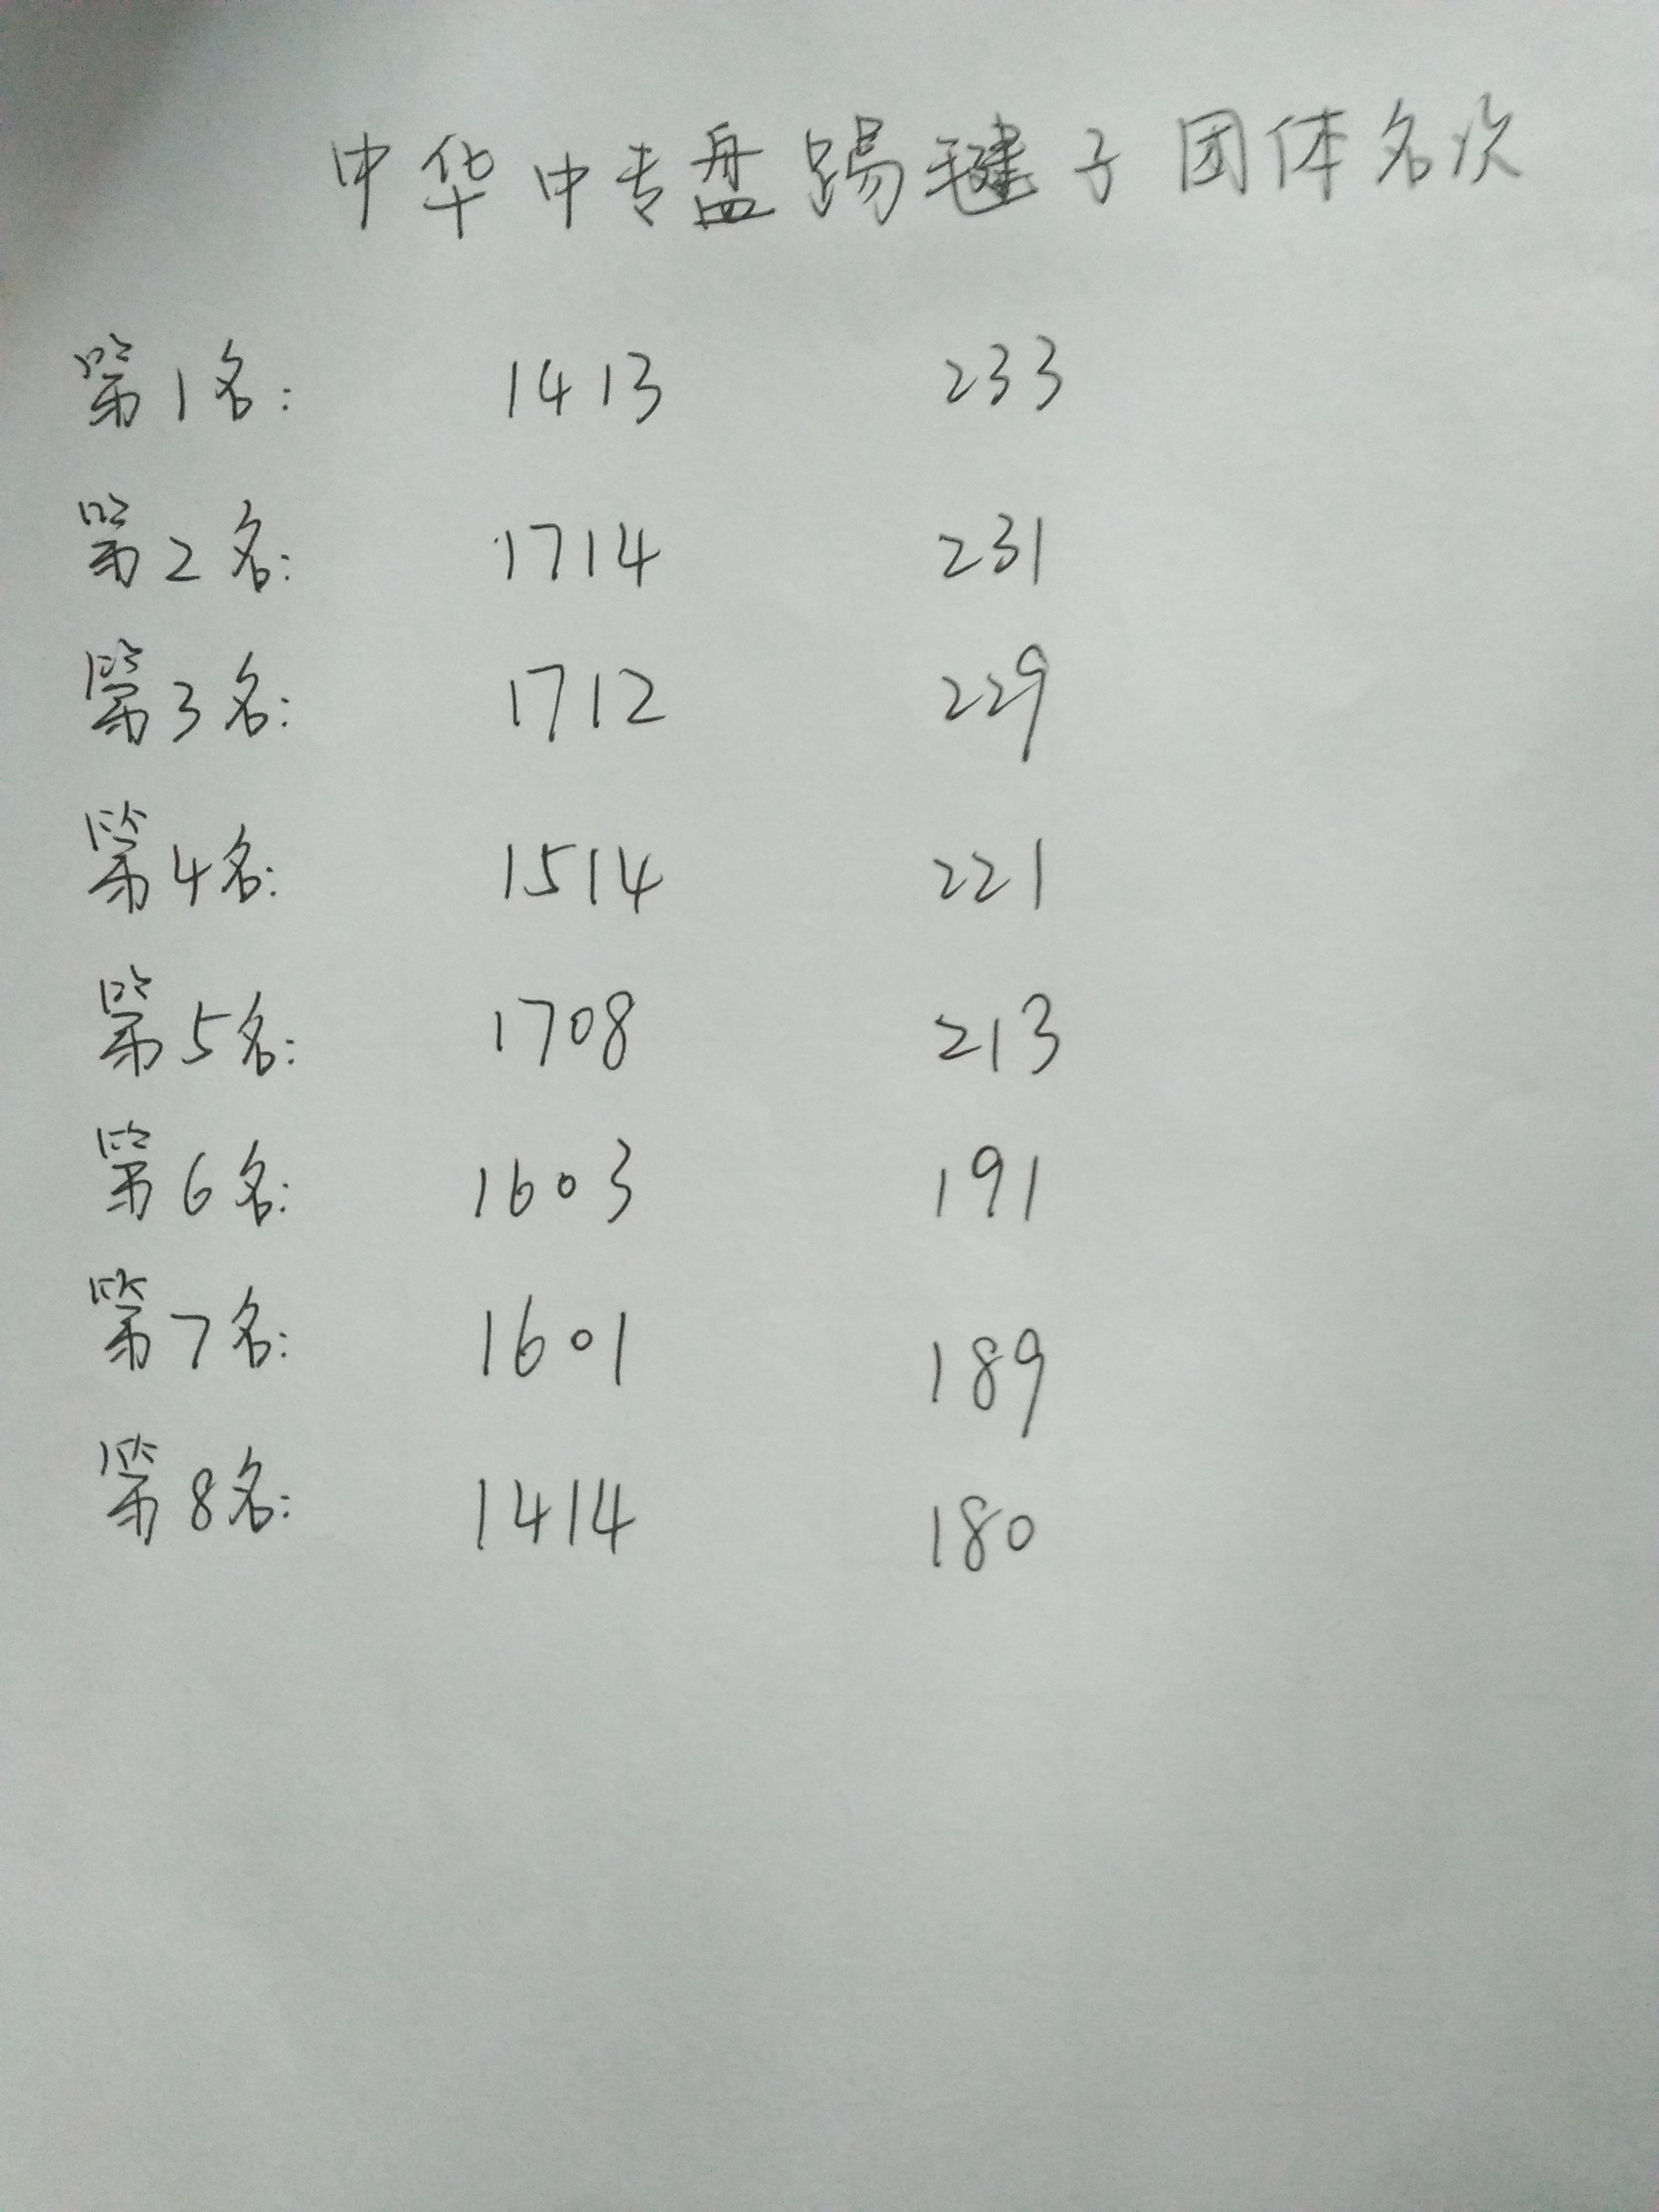 中华中专盘踢毽子团体名次
第1名: 1413 233
第2名: 1714 231
第3名: 1712 229
第4名: 1514 221
第5名: 1708 213
第6名: 1603 191
第7名: 1601 189
第8名: 1414 180